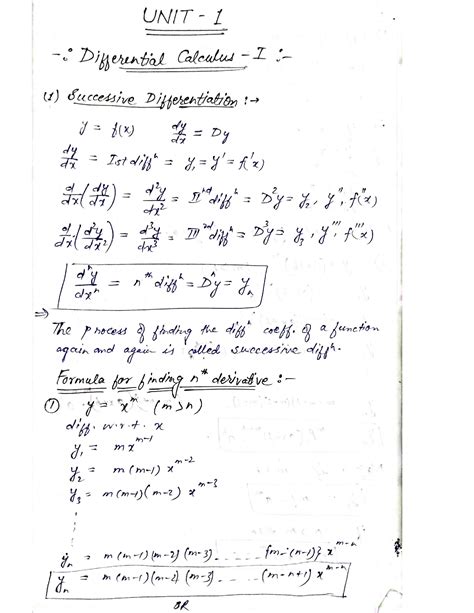 UNIT - 1
-: Differential Calculus - I :-
(1) Successive Differentiation :→
y = f(x) dy/dx = Dy
dy/dx = Ist diffⁿ = y₁ = y' = f'(x)
d/dx (dy/dx) = d²y/dx² = IInd diffⁿ = D²y = y₂, y'', f''(x)
d/dx (d²y/dx²) = d³y/dx³ = IIIrd diffⁿ = D³y = y₃, y''', f'''(x)
dⁿy/dxⁿ = nth diffⁿ = Dⁿy = yₙ
⇒
The process of finding the diffⁿ coeff. of a function
again and again is called successive diffⁿ.
Formula for finding nth derivative :-
① y = xᵐ (m > n)
diff. w.r.t. x
y₁ = mxᵐ⁻¹
y₂ = m(m-1) xᵐ⁻²
y₃ = m(m-1)(m-2) xᵐ⁻³
yₙ = m(m-1)(m-2)(m-3) ...... {m-(n-1)} xᵐ⁻ⁿ
yₙ = m(m-1)(m-2)(m-3) ...... (m-n+1) xᵐ⁻ⁿ
OR